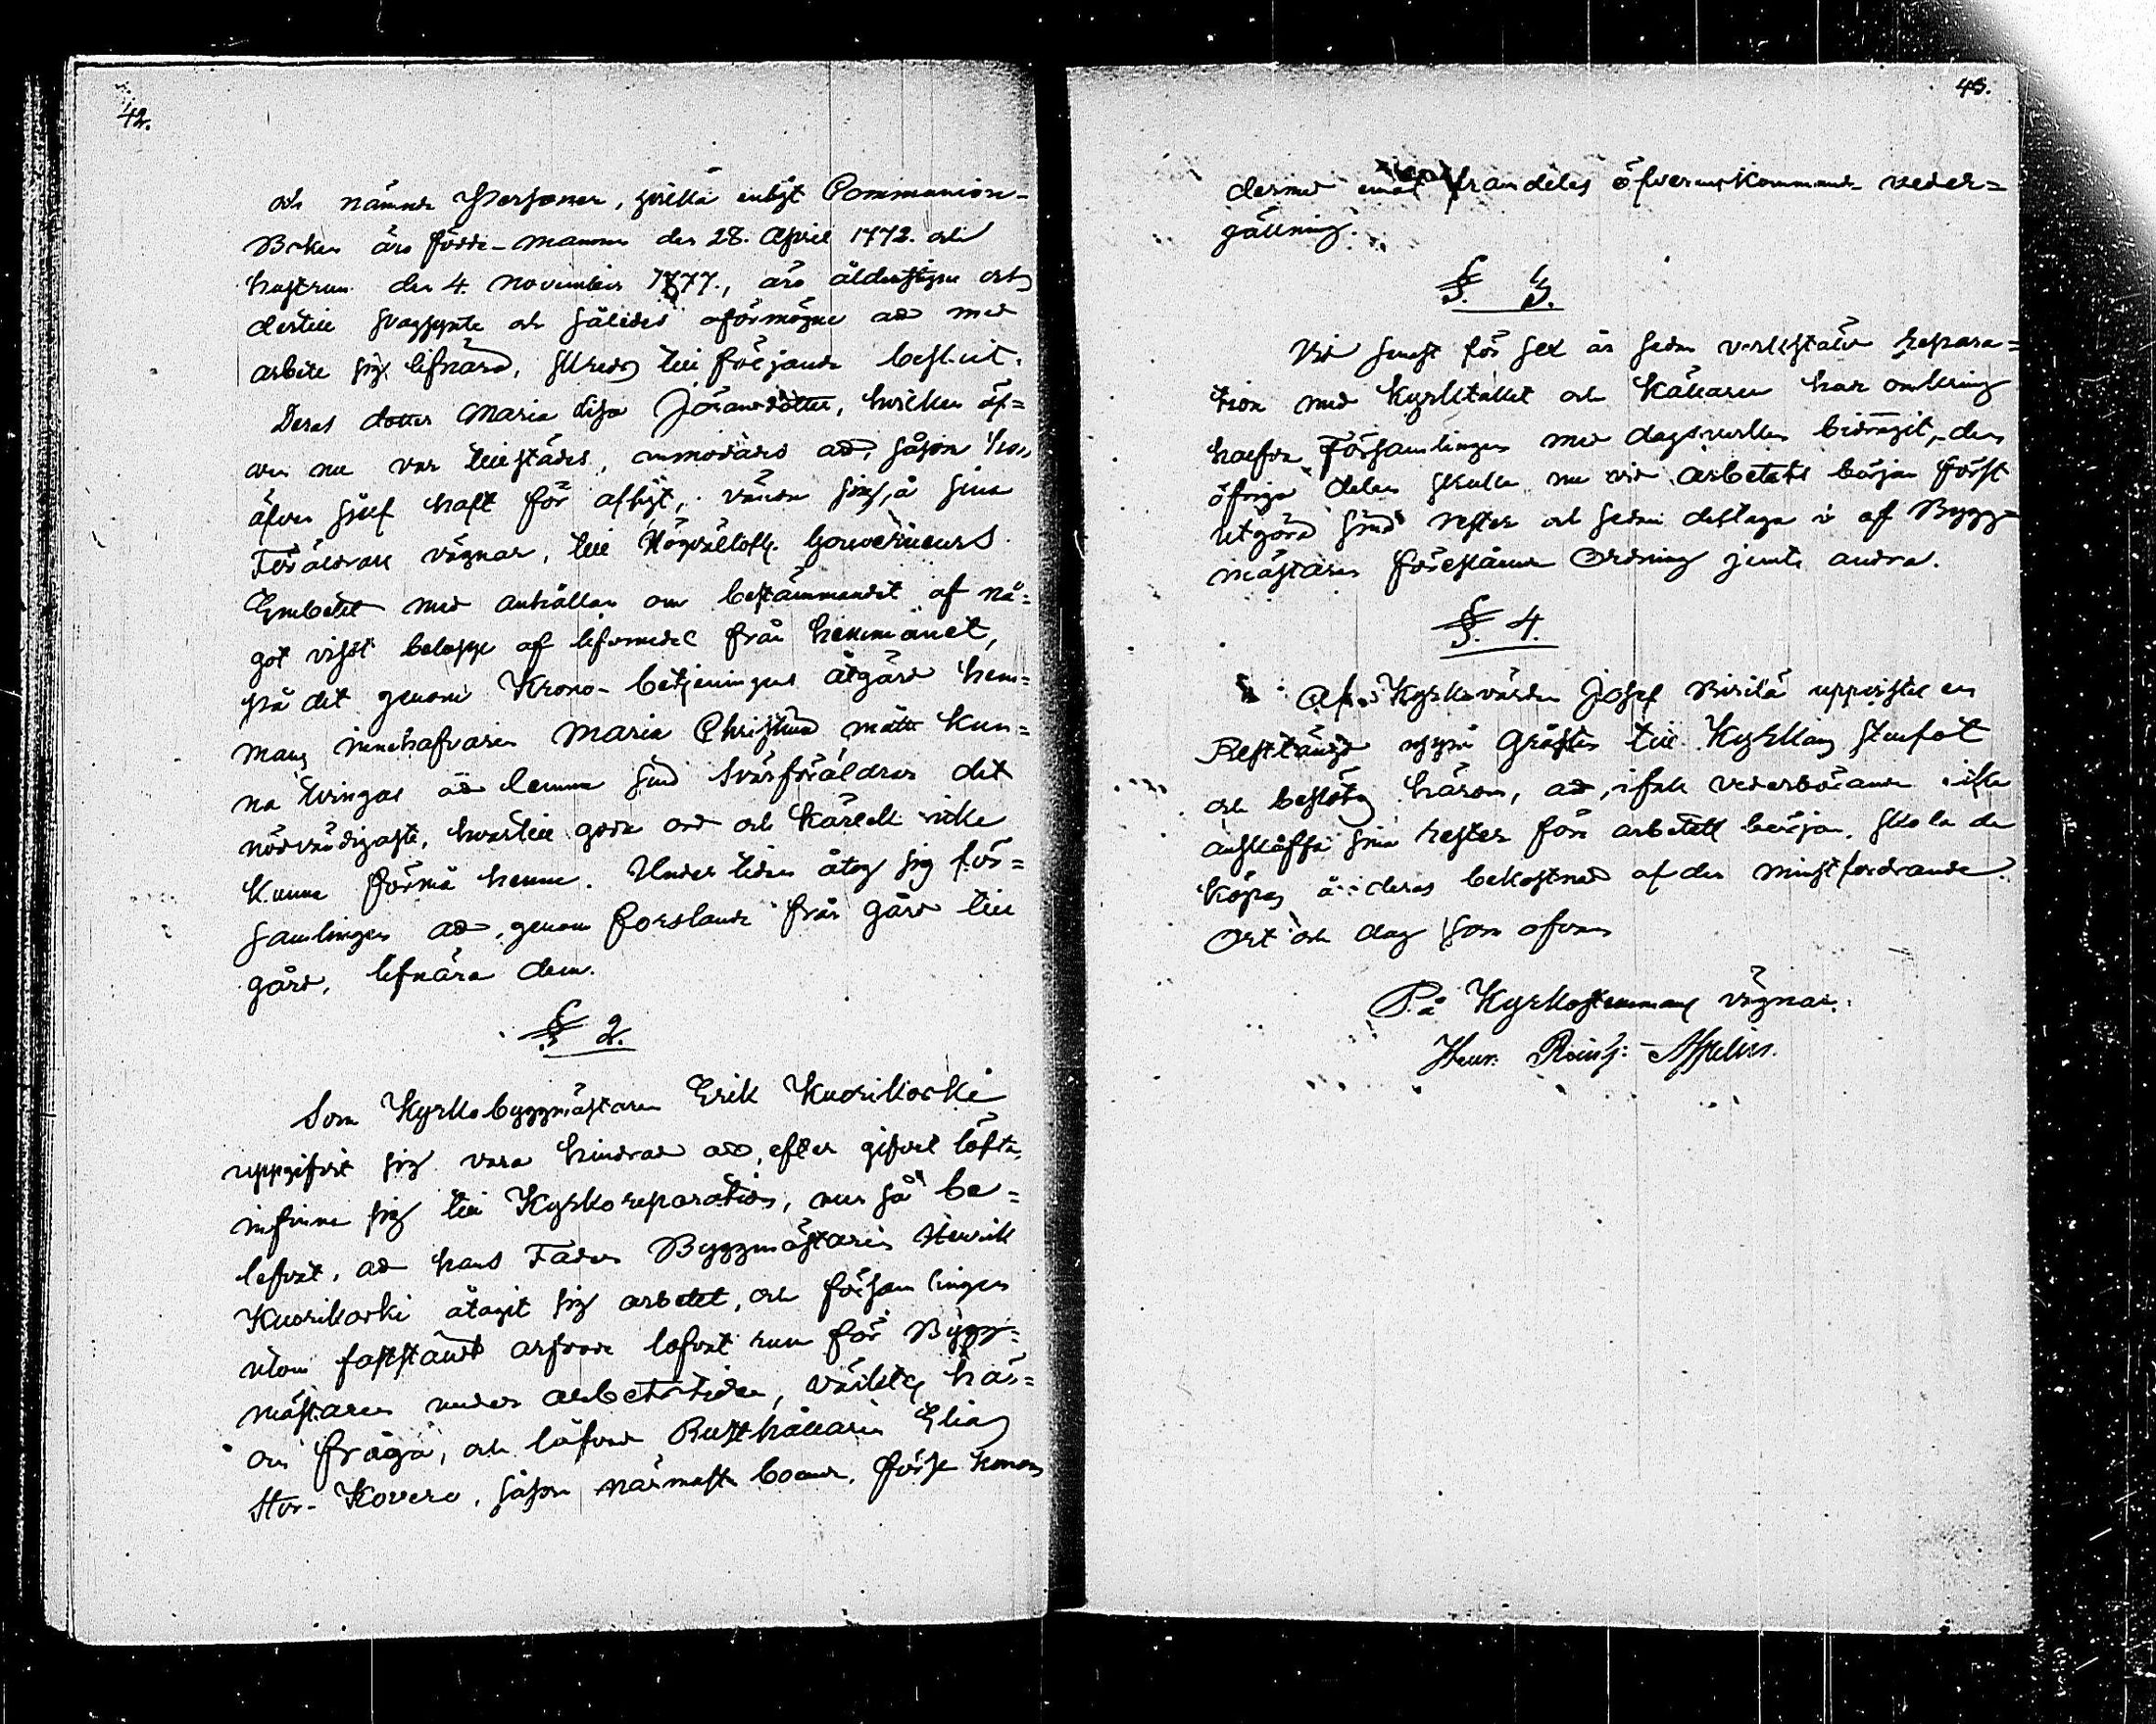 42.
och nämnde Personer, hvilka enligt Communion-
Boken äro födde - mannen den 28. April 1772. och
hustrun den 4. November 1777., äro ålderstigne och
dertill svagsynte och således oförmögne att med
arbete sig lifnära, skreds till följande beslut.
Deras dotter Maria Lisa Jöransdotter, hvilken äf=
ven nu var tillstädes, anmodades att, såsom hon
äfven sjelf haft för afsigt, vända sig, å sina
Föräldrars vägnar, till Högvällofl. Gouverneurs
Embetet med anhållan om bestämmandet af nå=
got visst belopp af lifsmedel från hemmanet,
på det genom Krono-betjeningens åtgärd hem=
mans innehafvaren Maria Christina måtte kun=
na tvingas att lemna sina Svärföräldrar det
nödvändigaste, hvartill goda ord och kärlek icke
kunna förmå henne. Under tiden åtog sig för=
samlingen att, genom forslande från gård till
gård, lifnära dem.
§ 2.
Som Kyrkobyggmästaren Erik Kuorikoski
uppgifvit sig vara hindrad att, efter gifvet löfte,
infinna sig till Kyrkoreparation, men så be=
lefvat, att hans Fader Byggmästaren Henrik
Kuorikoski åtagit sig arbetet, och församlingen
utom fastställdt arfvode lofvat rum för Bygg=
mästaren under arbetstiden, väcktes här=
om fråga, och låfvade Rusthållaren Elias
Stor-Kovero, såsom närmast boende, förse honom
43.
dermed emot framdeles öfverenskommande veder=
gällning.
§ 3.
Vid senast för sex år sedan verkställd repara=
tion med Kyrktaket och Källaren har omkring
halfva Församlingen med dagsverken bidragit, den
öfriga delen skulle nu vid arbetets början först
utgöra sina rester och sedan deltaga i af Bygg=
mästaren föreslående Ordning jemte andra.
§ 4.
Af Kyrkovärden Josef Birilä uppvistes en
Restlängd uppå till Kyrkans stenfot
och beslöts härom, att, ifall vederbörande icke
anskaffa sina rester före arbetets början, skola de
köpas å deras bekostnad af den minstfordrande.
Ort och dag som ofvan
På Kyrkostemmans vägnar:
Henr. Reinh: Aspelin.